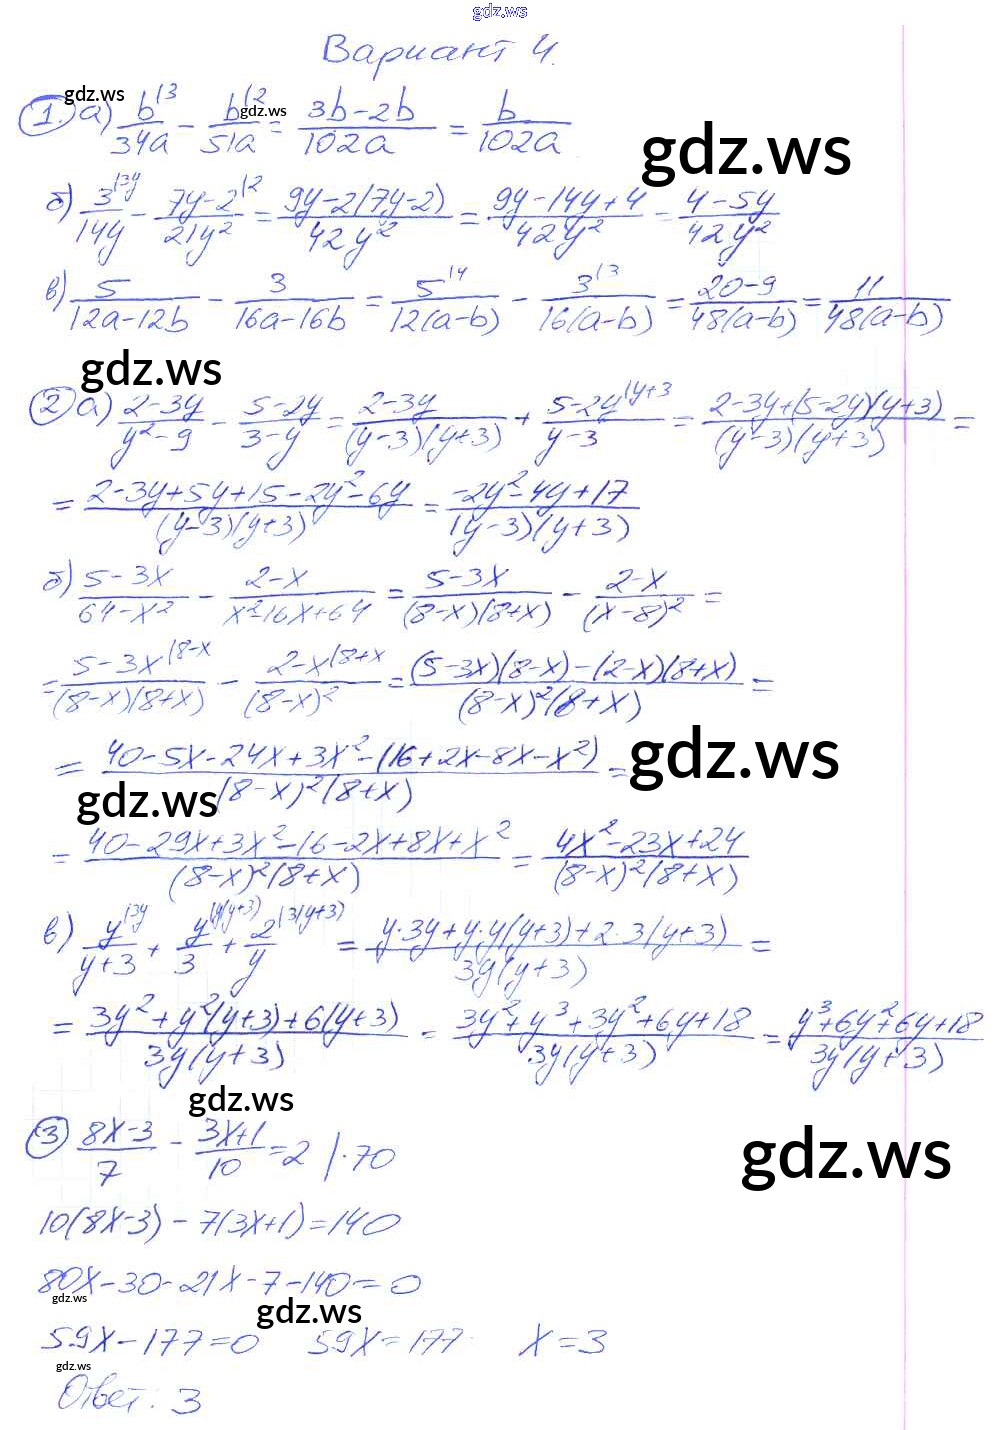 gdz.ws
Вариант 4.
1. а) b|3/34a − b|2/51a = (3b−2b)/102a = b/102a
gdz.ws
gdz.ws
gdz.ws
б) 3|3y/14y − 7y−2|2/21y² = (9y−2(7y−2))/42y² = (9y−14y+4)/42y² = (4−5y)/42y²
в) 5/(12a−12b) − 3/(16a−16b) = 5|4/12(a−b) − 3|3/16(a−b) = (20−9)/48(a−b) = 11/48(a−b)
gdz.ws
2 а) (2−3y)/(y²−9) − (5−2y)/(3−y) = (2−3y)/(y−3)(y+3) + 5−2y|y+3/(y−3) = (2−3y+(5−2y)(y+3))/(y−3)(y+3) =
= (2−3y+5y+15−2y²−6y)/(y−3)(y+3) = (−2y²−4y+17)/(y−3)(y+3)
б) (5−3x)/(64−x²) − (2−x)/(x²−16x+64) = (5−3x)/(8−x)(8+x) − (2−x)/(x−8)² =
= 5−3x|8−x/(8−x)(8+x) − 2−x|8+x/(8−x)² = ((5−3x)(8−x)−(2−x)(8+x))/(8−x)²(8+x) =
gdz.ws
= (40−5x−24x+3x²−(16+2x−8x−x²))/(8−x)²(8+x) =
gdz.ws
= (40−29x+3x²−16−2x+8x+x²)/(8−x)²(8+x) = (4x²−23x+24)/(8−x)²(8+x)
в) y|3y/(y+3) + y|y(y+3)/3 + 2|3(y+3)/y = (y·3y+y·y(y+3)+2·3(y+3))/3y(y+3) =
= (3y²+y²(y+3)+6(y+3))/3y(y+3) = (3y²+y³+3y²+6y+18)/3y(y+3) = (y³+6y²+6y+18)/3y(y+3)
gdz.ws
3 (8x−3)/7 − (3x+1)/10 = 2 |·70
gdz.ws
10(8x−3) − 7(3x+1) = 140
80x−30−21x−7−140=0
gdz.ws
gdz.ws
59x−177=0 59x=177 x=3
gdz.ws
Ответ: 3